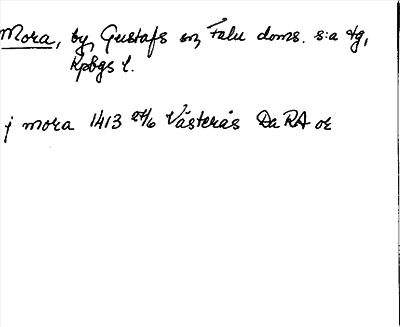 Mora, by, Gustafs sn, Falu doms. s:a tg,
Kpbgs l.
j mora 1413 27/6 Västerås DaRA or